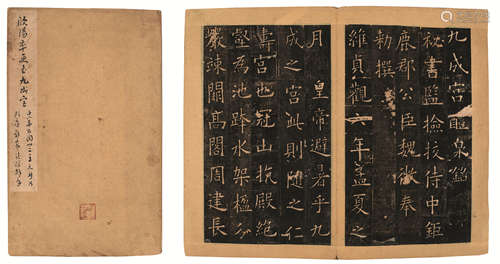 欧陽率更書九成宮
九成宮醴泉銘
秘書監檢挍侍中鉅
鹿郡公臣魏徵奉
勑撰
維貞觀六年孟夏之
月 皇帝避暑乎九
成之宮此則隨之仁
壽宮也冠山抗殿絕
壑為池跨水架楹分
巖竦闕高閣周建長